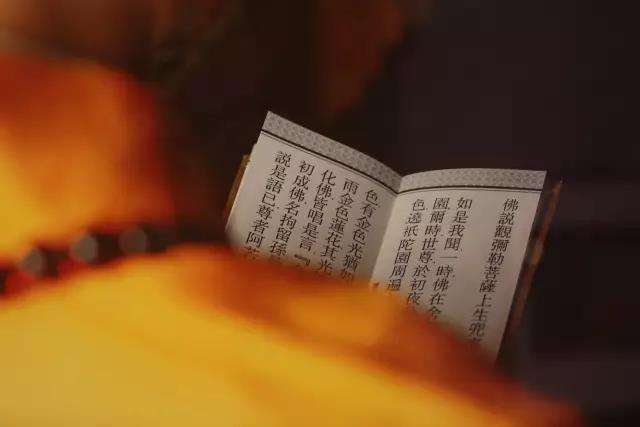 佛說觀彌勒菩薩上生兜
如是我聞一時佛在舍
園爾時世尊於初夜
色遶祇陀園周遍
色有金色光猶如
雨金色蓮花其光
化佛皆唱是言『
初成佛名拘留孫
說是語已尊者阿